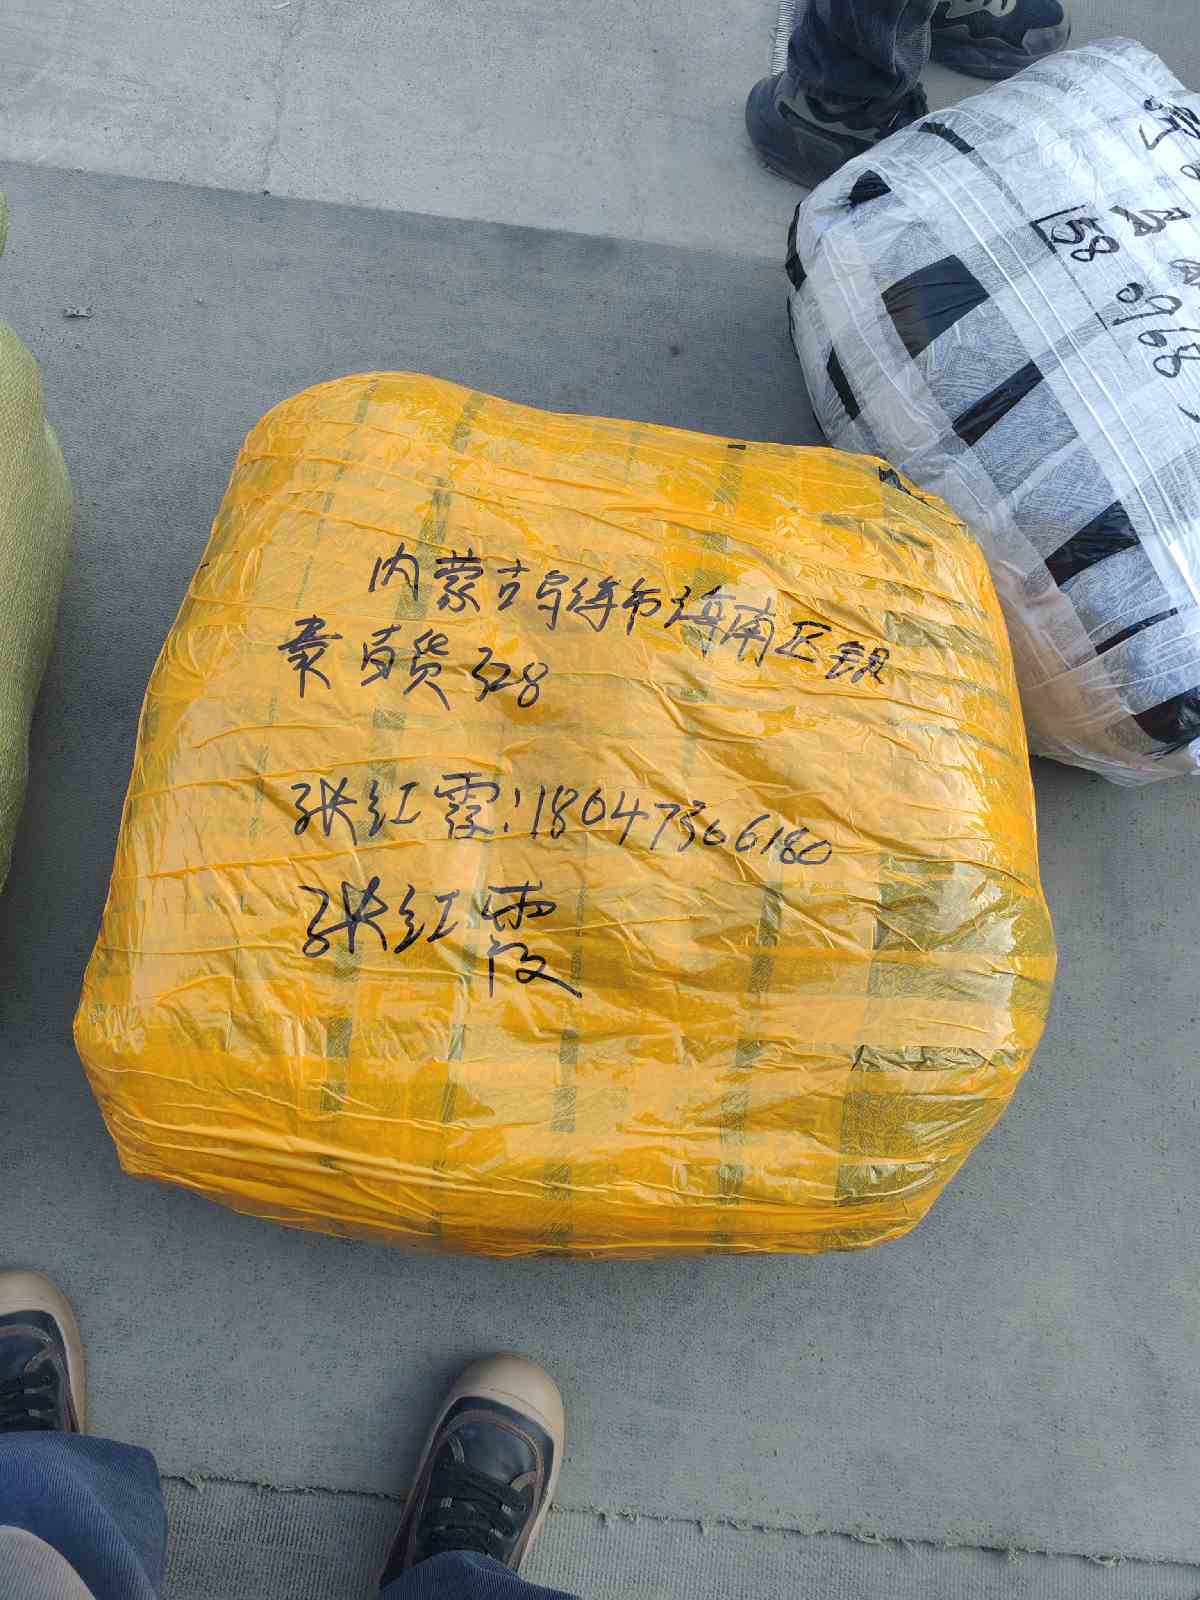 内蒙古乌海市海南区银
豪百货328
张红霞:18047306180
张红霞
58
0968